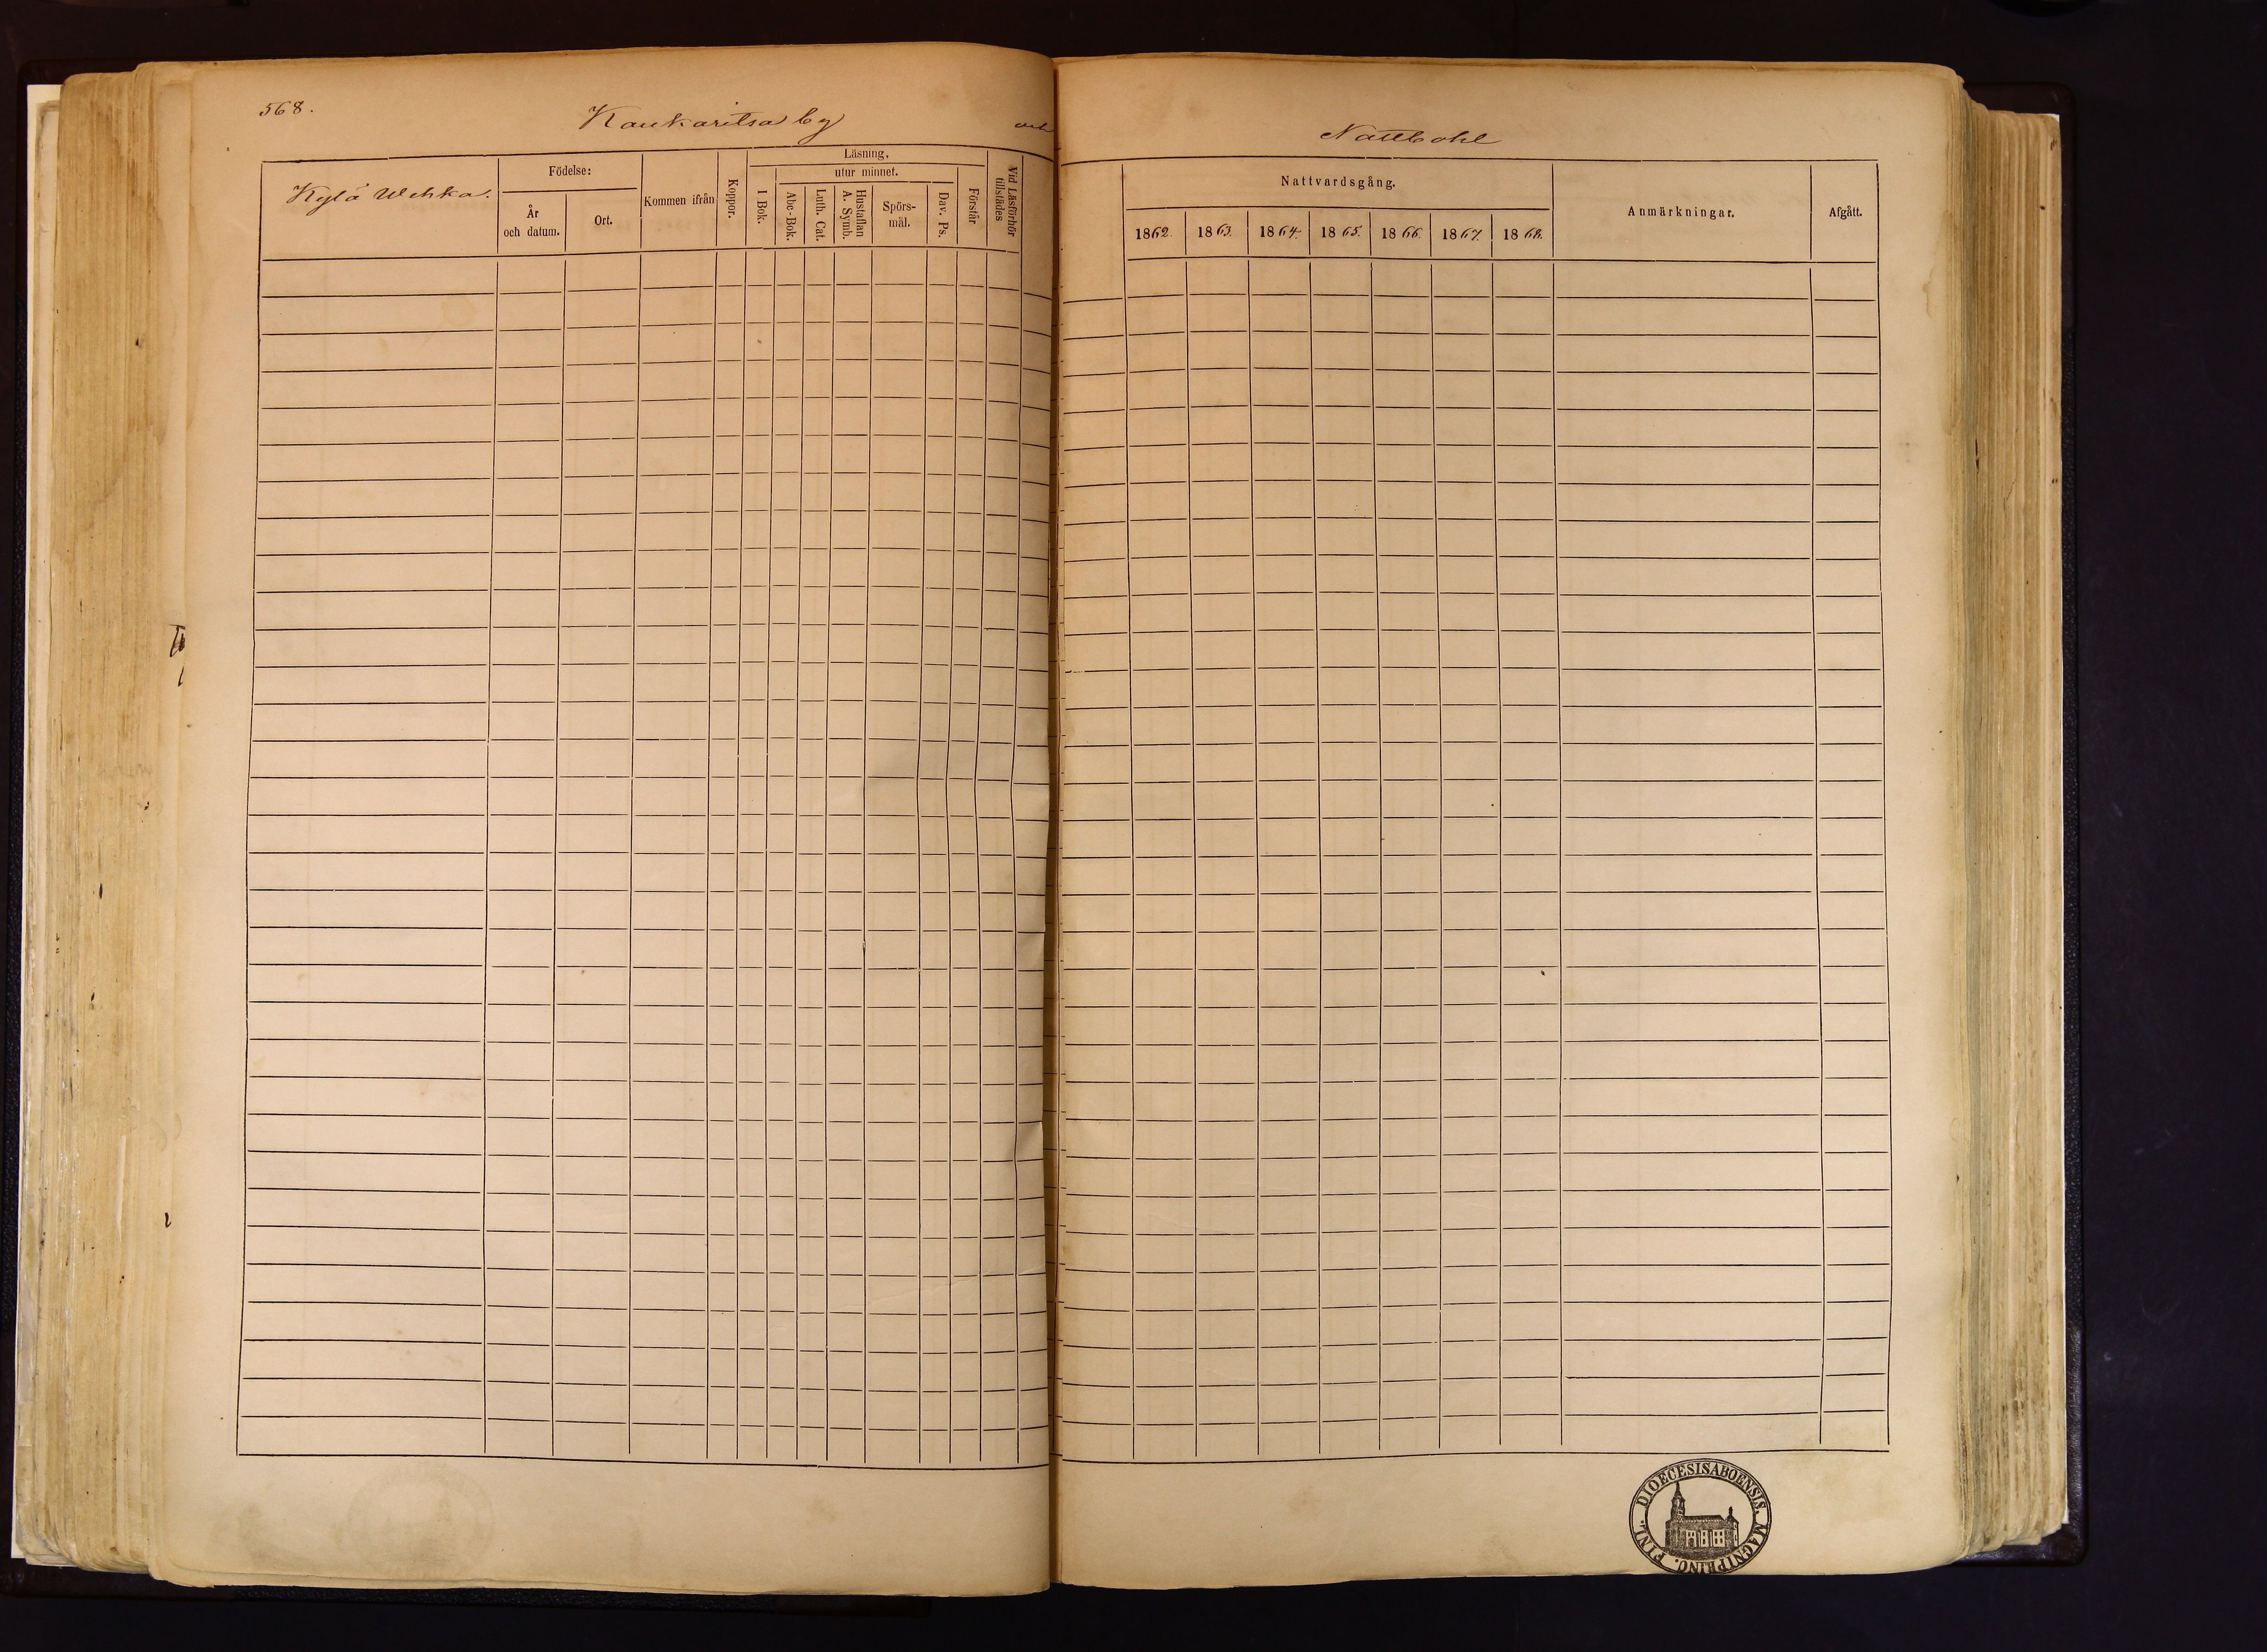 568.
Kaukaritsa by och
Nattbohl
Kylä Uchka.
Födelse:
År och datum.
Ort.
Kommen ifrån
Koppor.
Läsning,
utur minnet.
I Bok.
Abc-Bok.
Luth. Cat.
Hustaflan A. Symb.
Spörs-mål.
Dav. Ps.
Förstår
Vid Läsförhör tillstädes
Nattvardsgång.
1862. 1863. 1864. 1865. 1866. 1867. 1868.
Anmärkningar.
Afgått.
DIOECESIS ABOENSIS. MAGNI PRINC. FINL.